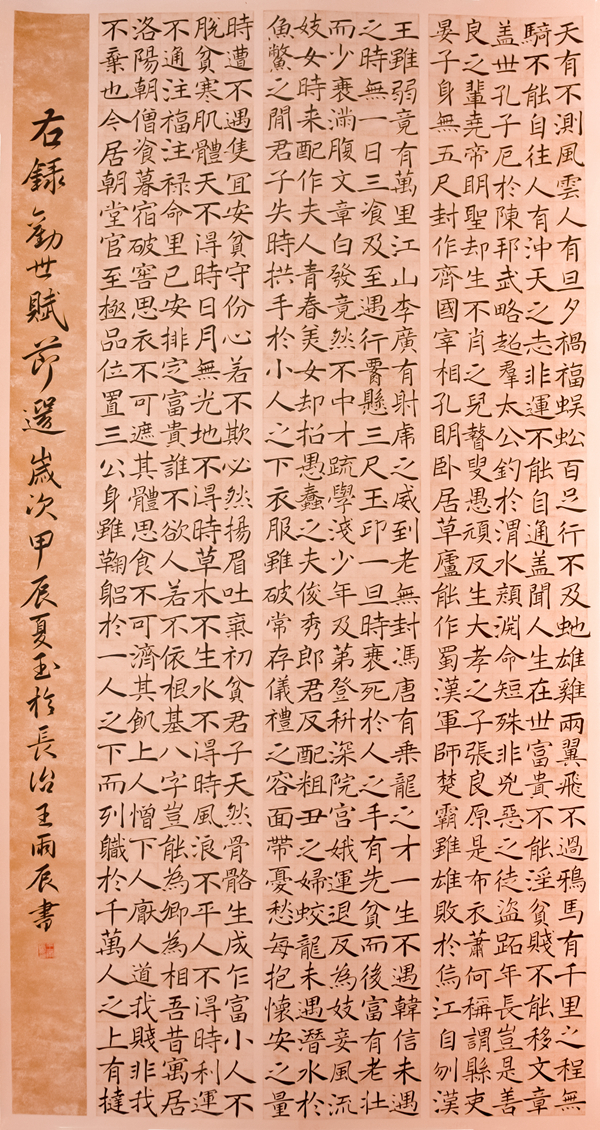 天有不測風雲人有旦夕禍福蜈蚣百足行不及虵雄雞兩翼飛不過鴉馬有千里之程無
騎不能自往人有沖天之志非運不能自通盖聞人生在世富貴不能淫貧賤不能移文章
盖世孔子厄於陳邦武略超羣太公釣於渭水顏淵命短殊非兇惡之徒盜跖年長豈是善
良之輩堯帝明聖却生不肖之兒瞽叟愚頑反生大孝之子張良原是布衣蕭何稱謂縣吏
晏子身無五尺封作齊國宰相孔明卧居草廬能作蜀漢軍師楚霸雖雄敗於烏江自刎漢
王雖弱竟有萬里江山李廣有射虎之威到老無封馮唐有乘龍之才一生不遇韓信未遇
之時無一日三飡及至遇行腰懸三尺玉印一旦時衰死於人之手有先貧而後富有老壯
而少衰滿腹文章白發竟然不中才疏學淺少年及第登科深院宮娥運退反為妓妾風流
妓女時来配作夫人青春美女却招愚蠢之夫俊秀郎君反配粗丑之婦蛟龍未遇潛水於
魚鱉之間君子失時拱手於小人之下衣服雖破常存儀禮之容面帶憂愁每抱懷安之量
時遭不遇隻宜安貧守份心若不欺必然揚眉吐氣初貧君子天然骨骼生成乍富小人不
脫貧寒肌體天不得時日月無光地不得時草木不生水不得時風浪不平人不得時利運
不通注福注禄命里已安排定富貴誰不欲人若不依根基八字豈能為卿為相吾昔寓居
洛陽朝僧飡暮宿破窖思衣不可遮其體思食不可濟其飢上人憎下人厭人道我賤非我
不棄也今居朝堂官至極品位置三公身雖鞠躬於一人之下而列職於千萬人之上有撻
右錄勸世賦節選歲次甲辰夏至於長治王雨辰書